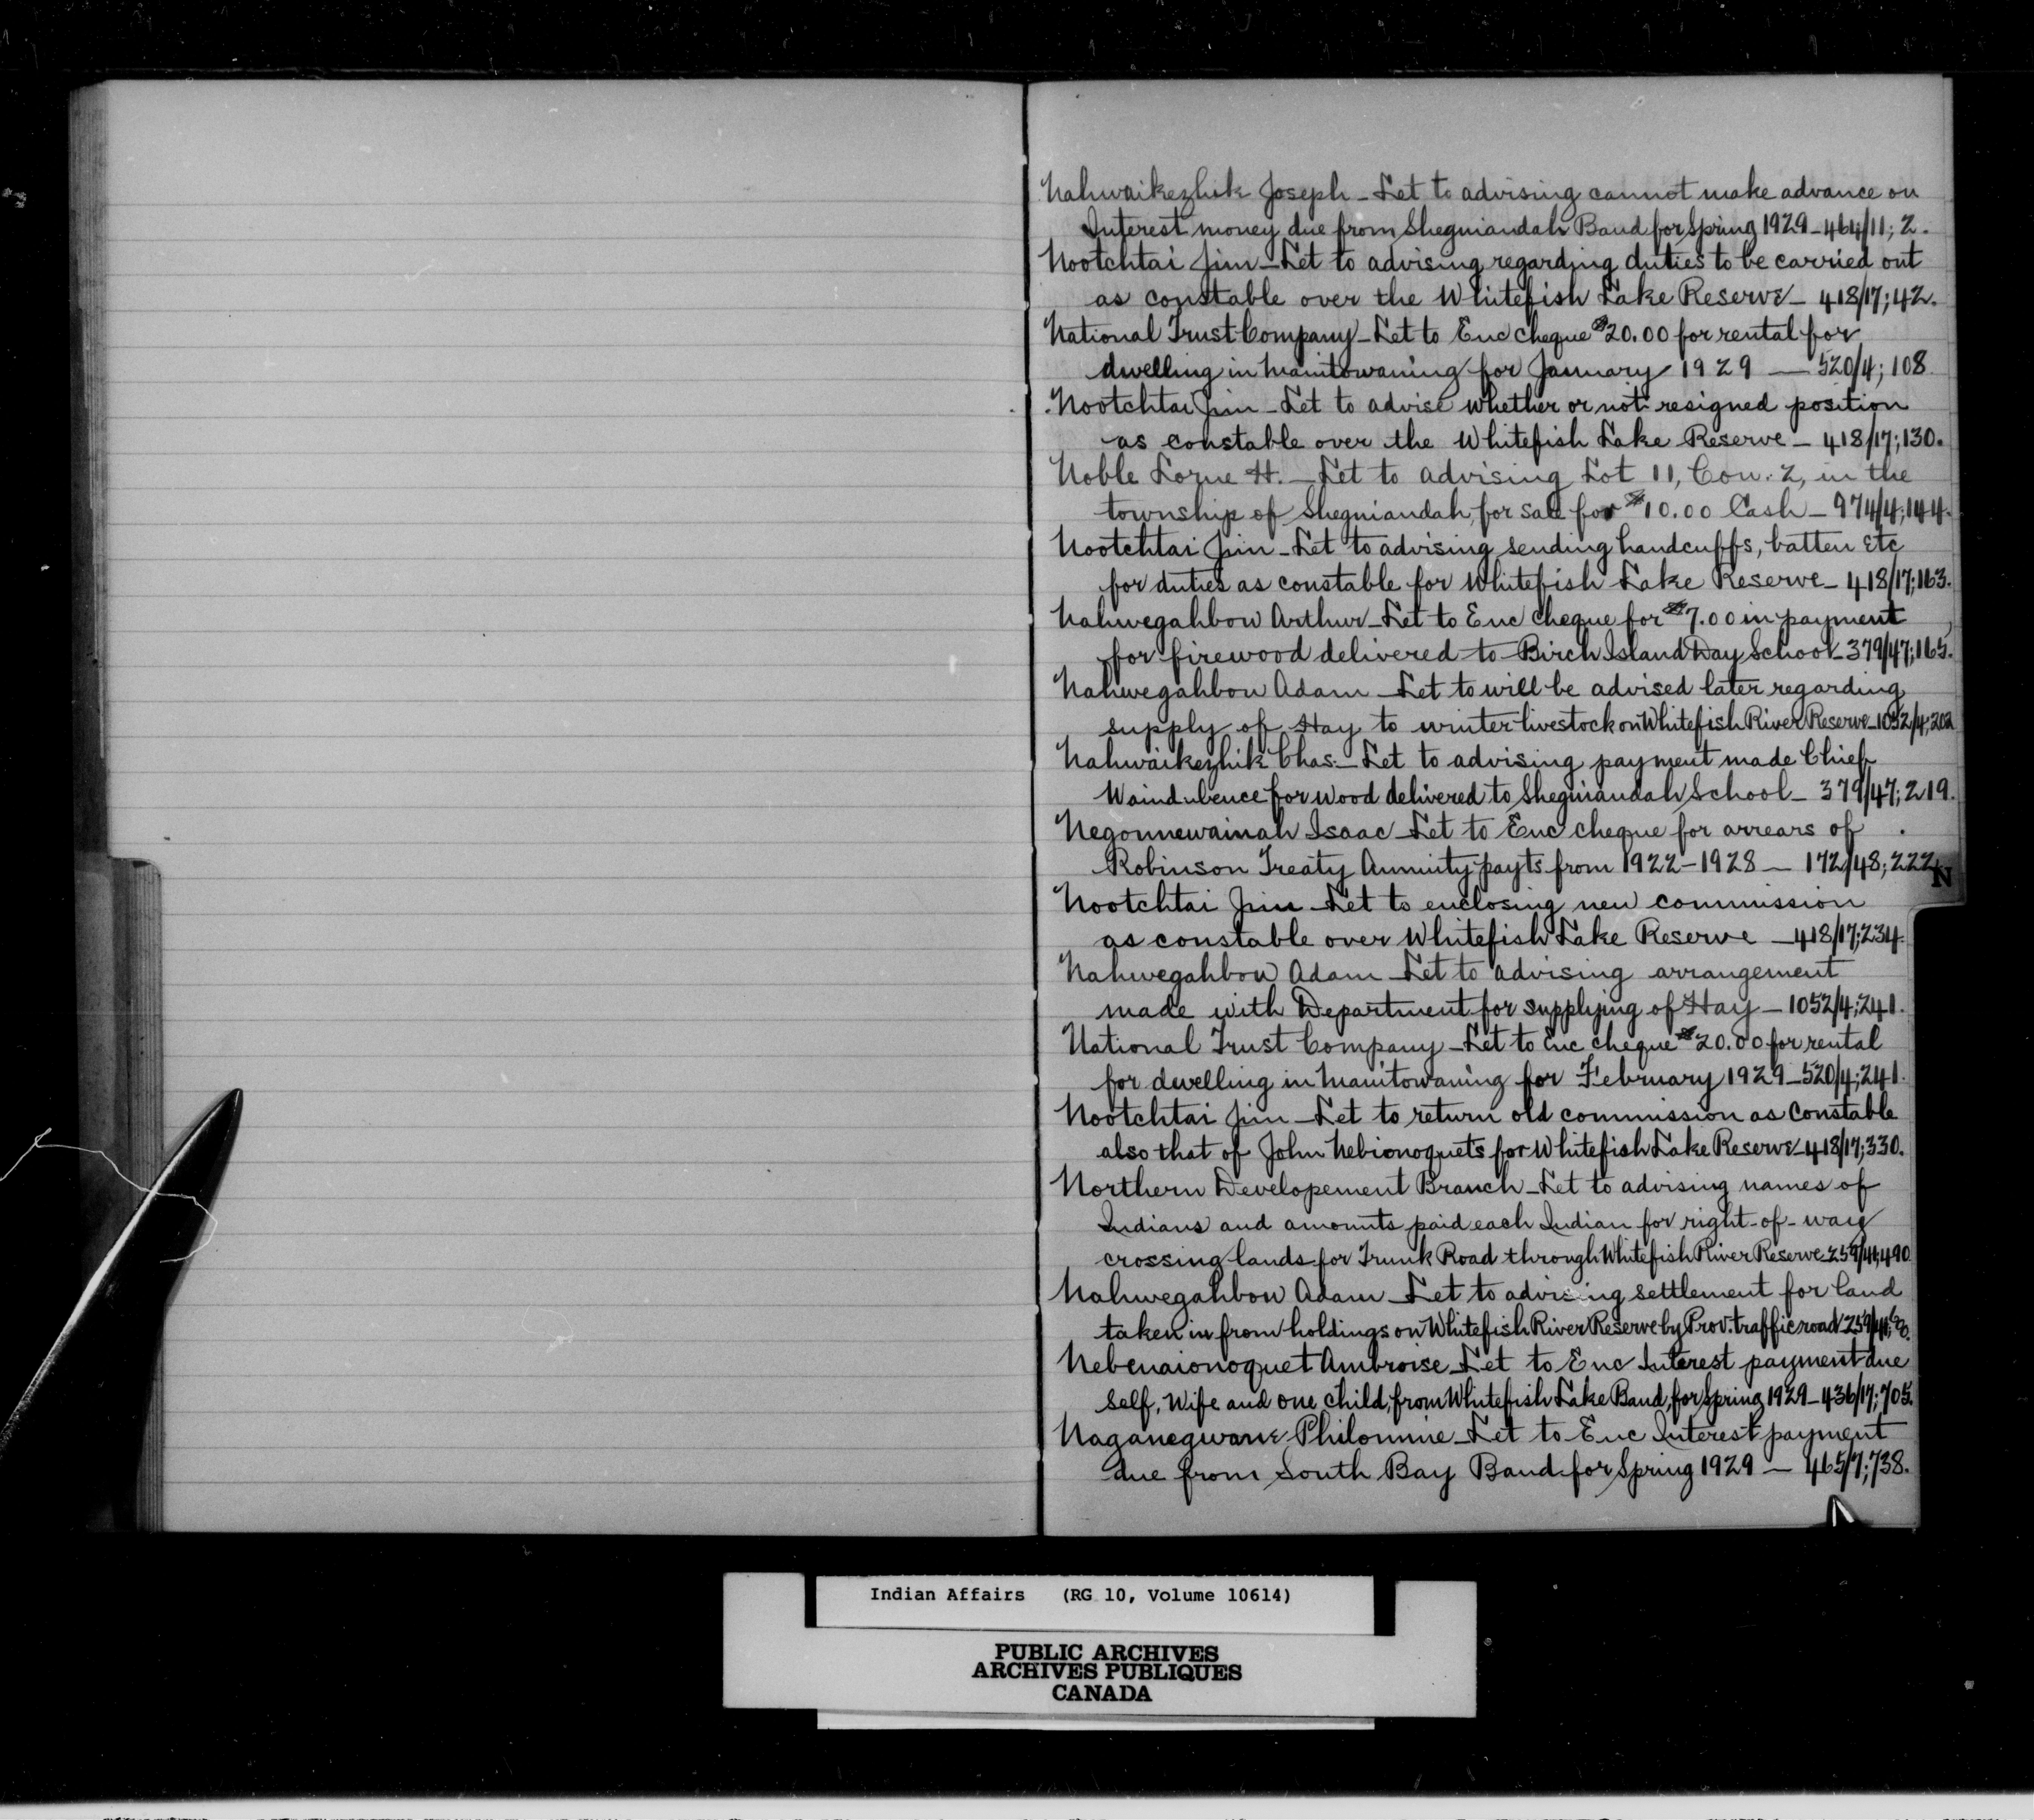 Nahwaikezhik Joseph - Let to advising cannot make advance on
Interest money due from Sheguiandah Band for Spring 1929 - 464/11; 2.
Nootchtai Jim - Let to advising regarding duties to be carried out
as constable over the Whitefish Lake Reserve - 418/17; 42.
National Trust Company - Let to Enc cheque $20.00 for rental for
dwelling in Manitowaning for January 1929 — 520/4; 108
Nootchtai Jim - Let to advise whether or not resigned position
as constable over the Whitefish Lake Reserve - 418/17; 130.
Noble Lorne H. - Let to advising Lot 11, Con. 2, in the
township of Sheguiandah, for sale for $10.00 Cash - 974/4; 144.
Nootchtai Jim - Let to advising sending handcuffs, batten etc
for duties as constable for Whitefish Lake Reserve - 418/17; 163.
Nahwegahbow Arthur - Let to Enc cheque for $7.00 in payment
for firewood delivered to Birch Island Day School - 379/47; 165.
Nahwegahbow Adam - Let to will be advised later regarding
supply of Hay to winter livestock on Whitefish River Reserve - 1052/4; 202
Nahwaikezhik Chas. - Let to advising payment made Chief
Waindubence for wood delivered to Sheguiandah School - 379/47; 219.
Negonnewainah Isaac - Let to Enc cheque for arrears of
Robinson Treaty Annuity payts from 1922-1928 — 172/48; 222
N
Nootchtai Jim - Let to enclosing new commission
as constable over Whitefish Lake Reserve - 418/17; 234.
Nahwegahbow Adam - Let to advising arrangement
made with Department for supplying of Hay - 1052/4; 241.
National Trust Company - Let to Enc cheque $20.00 for rental
for dwelling in Manitowaning for February 1929 - 520/4; 241.
Nootchtai Jim - Let to return old commission as Constable
also that of John Nebionoquets for Whitefish Lake Reserve - 418/17; 330.
Northern Developement Branch - Let to advising names of
Indians and amounts paid each Indian for right-of-way
crossing lands for Trunk Road through Whitefish River Reserve - 259/41; 490.
Nahwegahbow Adam - Let to advising settlement for land
taken in from holdings on Whitefish River Reserve by Prov. traffic road
Nebenaionoquet Ambroise - Let to Enc Interest payment due
self, Wife and one child, from Whitefish Lake Band, for Spring 1929 - 436/17; 705.
Naganegwane Philomine - Let to Enc Interest payment
due from South Bay Band for Spring 1929 — 465/7; 738.
Indian Affairs (RG 10, Volume 10614)
PUBLIC ARCHIVES
ARCHIVES PUBLIQUES
CANADA